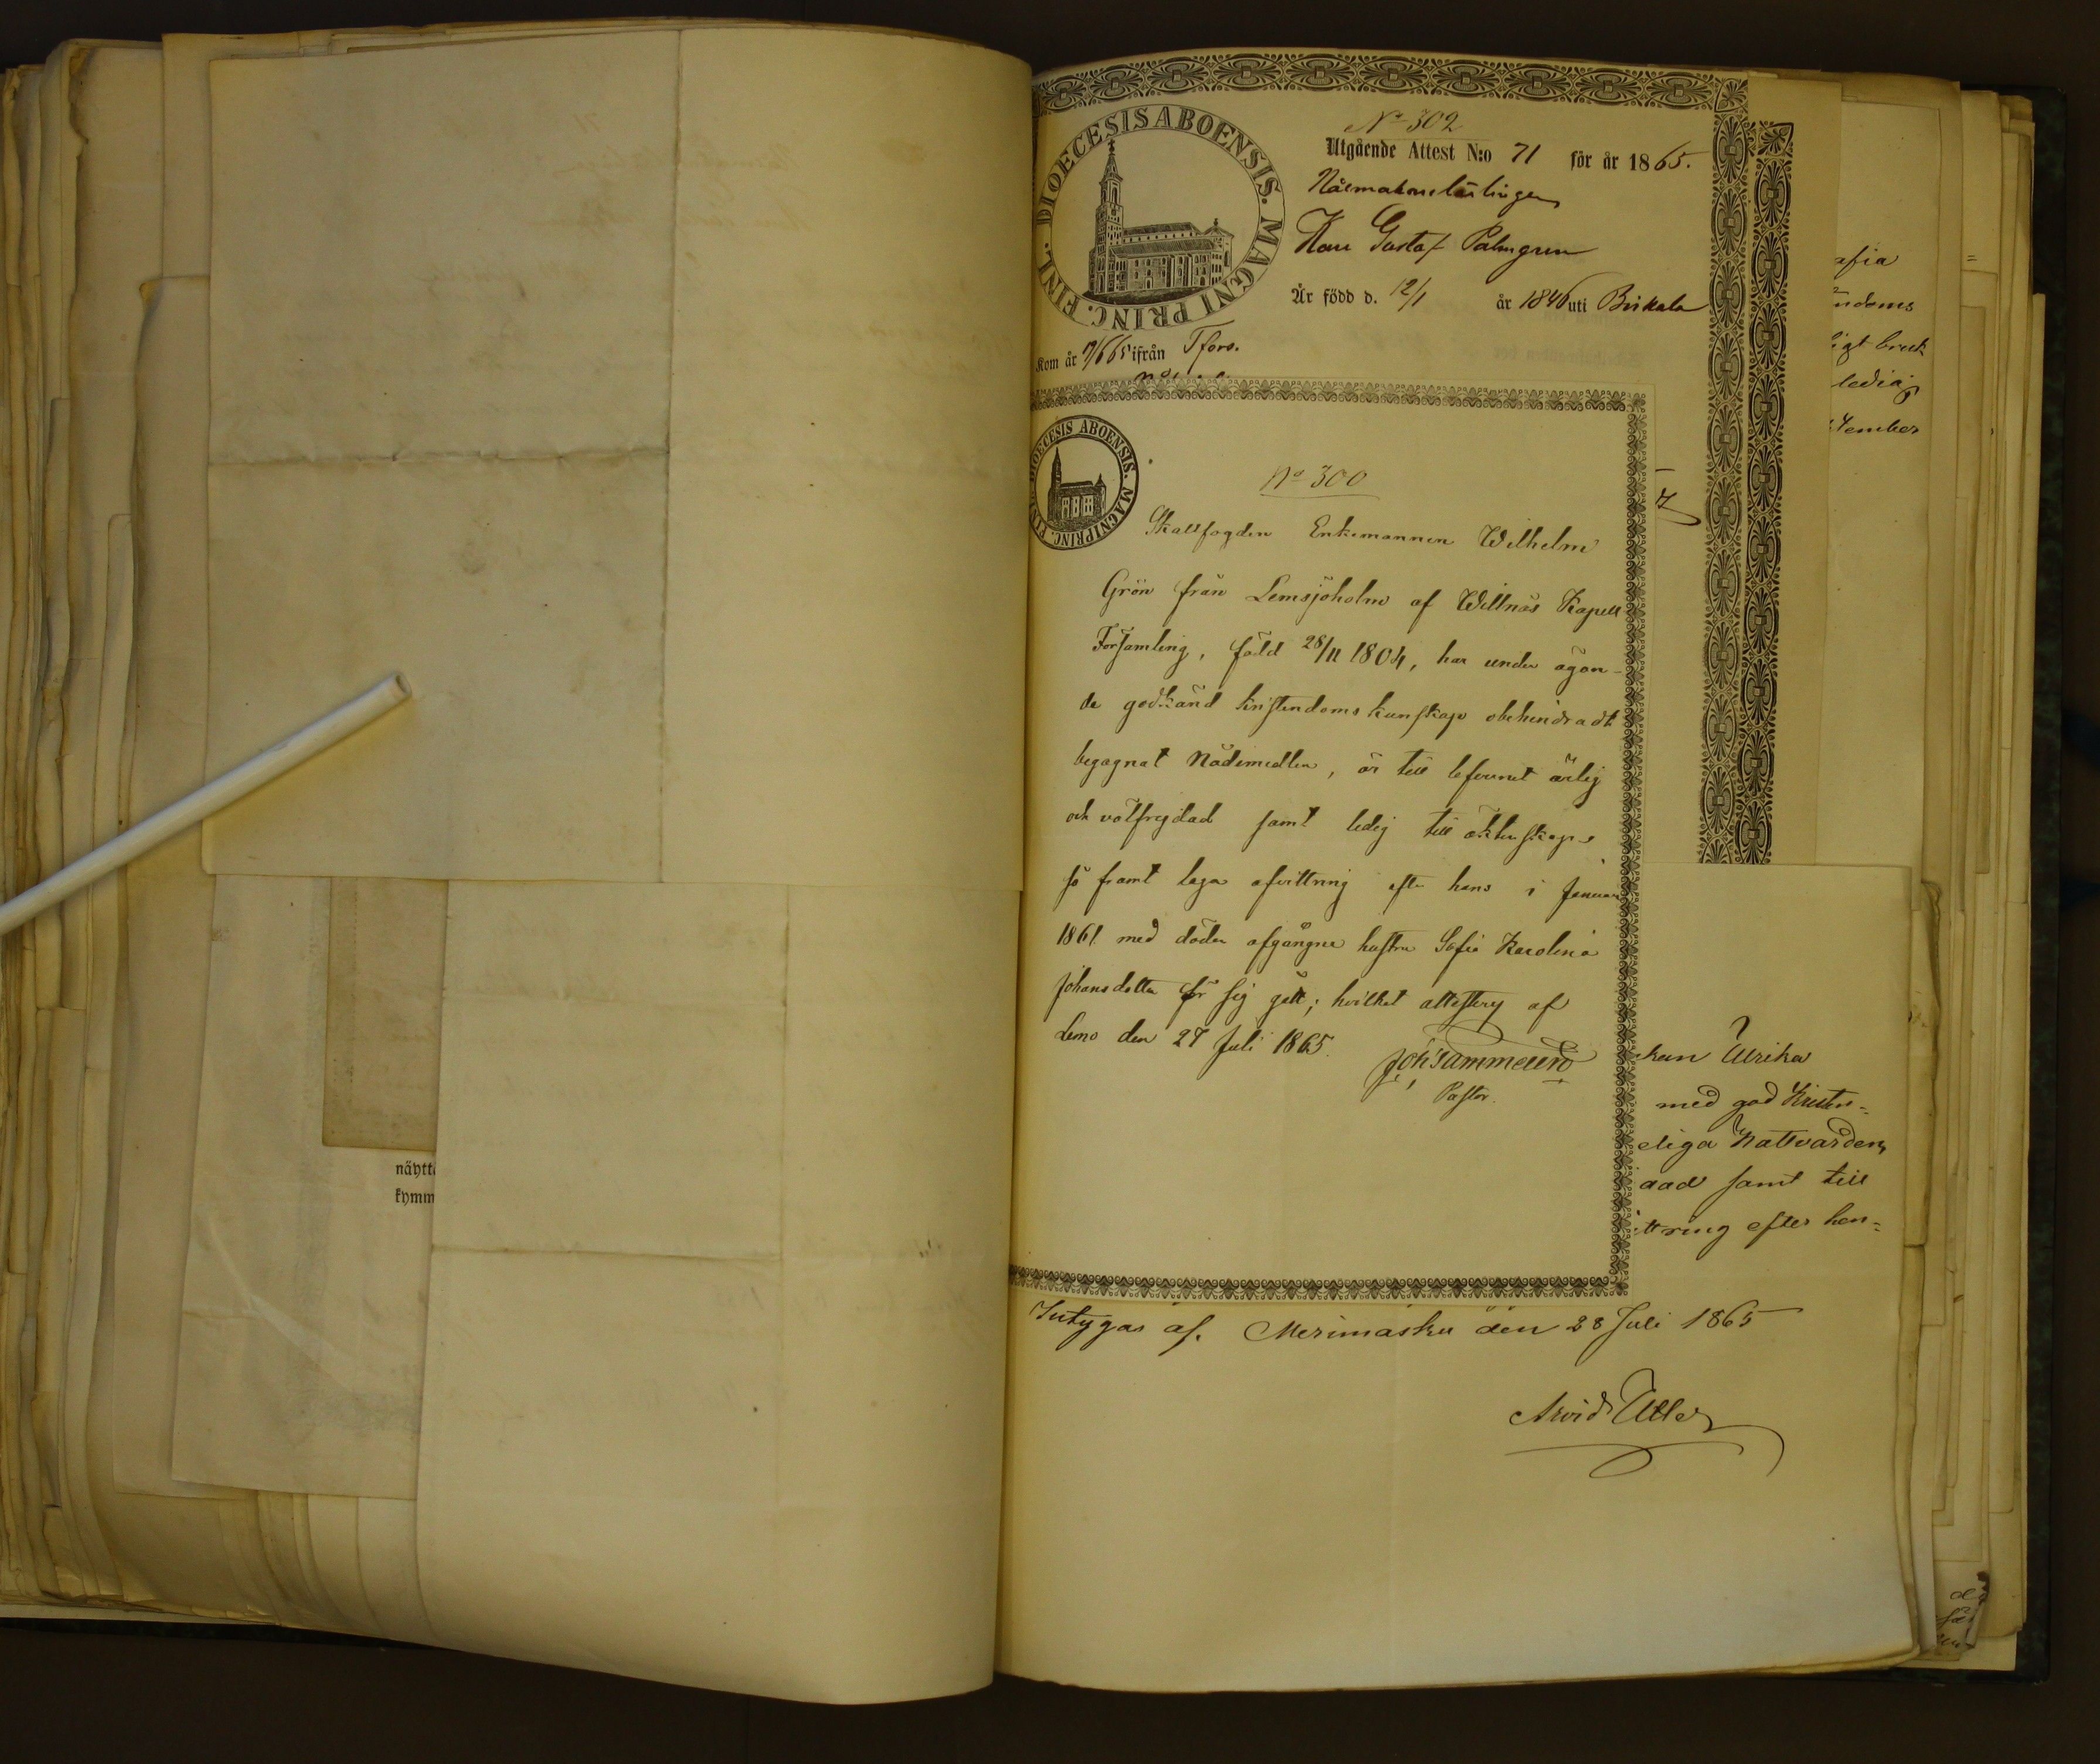 DIOECESIS ABOENSIS. MAGNI PRINC. FINL.
No 302
Utgående Attest N:o 71 för år 1865.
Nålmakarelärlingen
Karl Gustaf Palmgren
Är född d. 12/1 år 1846 uti Birkala
Kom år 17/6 65 ifrån Tfors.
DIOECESIS ABOENSIS. MAGNI PRINC. FINL.
No 300
Skallfogden Enkemannen Wilhelm
Grön från Lemsjöholm af Willnäs Kapell
Församling, född 28/11 1804, har under ägan-
de godkänd kristendoms kunskap obehindradt
begagnat Nådemedlen, är till lefvernet ärlig
och välfrejdad samt ledig till äktenskap
så framt laga afvittring efter hans i Januari
1861 med döden afgångne hustru Sofia Karolina
Johansdotter för sig gått; hvilket attesteras af
Lemo den 27 Juli 1865.
Joh Tammelin
Pastor.
kan Ulrika
med god Kristen-
eliga Nattvarden,
aad samt till
ttring efter hen-
Intygas af. Merimasku den 28 Juli 1865
Arvid Utter
afia
ndoms
igt bruk
ledig
tember
näytt
kymm